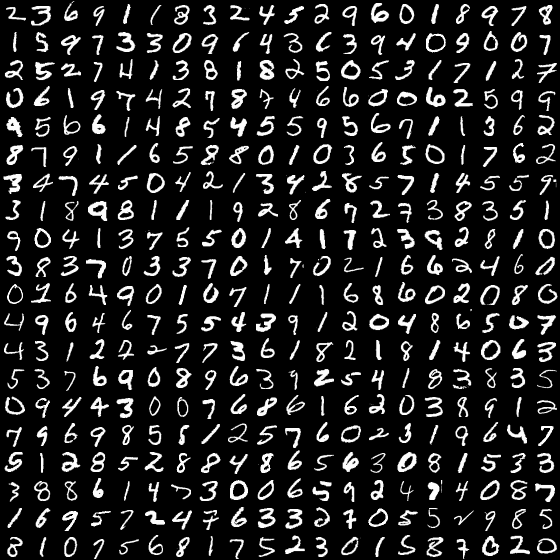 2 3 6 9 1 1 8 3 2 4 5 2 9 6 0 1 8 9 7 8
1 5 9 7 3 3 0 9 6 4 3 6 3 9 4 0 9 0 0 7
2 5 2 7 4 1 3 8 1 8 2 5 0 5 3 1 7 1 2 7
0 6 1 9 7 4 2 7 8 7 4 6 6 0 0 6 2 5 9 9
9 5 6 6 1 4 8 5 4 5 5 9 5 6 7 1 1 3 6 2
8 7 9 1 1 6 5 8 8 0 1 0 3 6 5 0 1 7 6 2
3 4 7 4 5 0 4 2 1 3 4 2 8 5 7 1 4 5 5 9
3 1 8 9 8 1 1 1 9 2 8 6 7 2 7 3 8 3 5 1
9 0 4 1 3 7 5 5 0 1 4 1 7 2 3 9 2 8 1 0
3 8 3 7 0 3 3 7 0 1 7 0 2 1 6 6 2 4 6 0
0 1 6 4 9 0 1 0 7 1 1 1 6 8 6 0 2 0 8 6
4 9 6 4 6 7 5 5 4 3 9 1 2 0 4 8 6 5 0 7
4 3 1 2 2 2 7 7 3 6 1 8 2 1 8 1 4 0 6 3
5 3 7 6 9 0 8 9 6 3 9 2 5 4 1 8 3 8 3 5
0 9 4 4 3 0 0 7 6 8 6 1 6 2 0 3 8 9 1 2
7 9 6 9 8 5 8 1 2 5 7 6 0 2 3 1 9 6 4 7
5 1 2 8 5 2 8 8 4 8 6 5 6 3 0 8 1 5 3 3
3 8 8 6 1 4 7 3 0 0 6 5 9 2 4 9 4 0 8 7
1 6 9 5 7 2 4 7 6 3 3 2 7 0 5 5 2 9 8 5
8 1 0 7 5 6 8 1 7 5 2 3 0 1 5 8 7 0 2 0